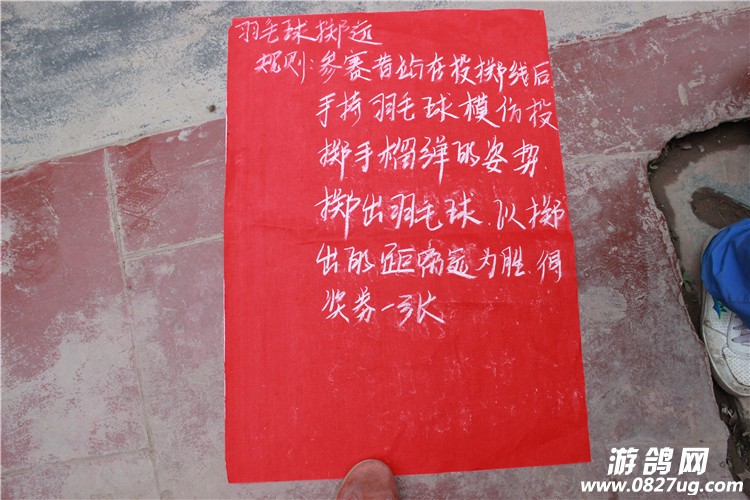 羽毛球掷远
规则:参赛者站在投掷线后
手持羽毛球模仿投
掷手榴弹的姿势
掷出羽毛球.以掷
出的距离远为胜.得
奖券一张
游鸽网
www.0827ug.com